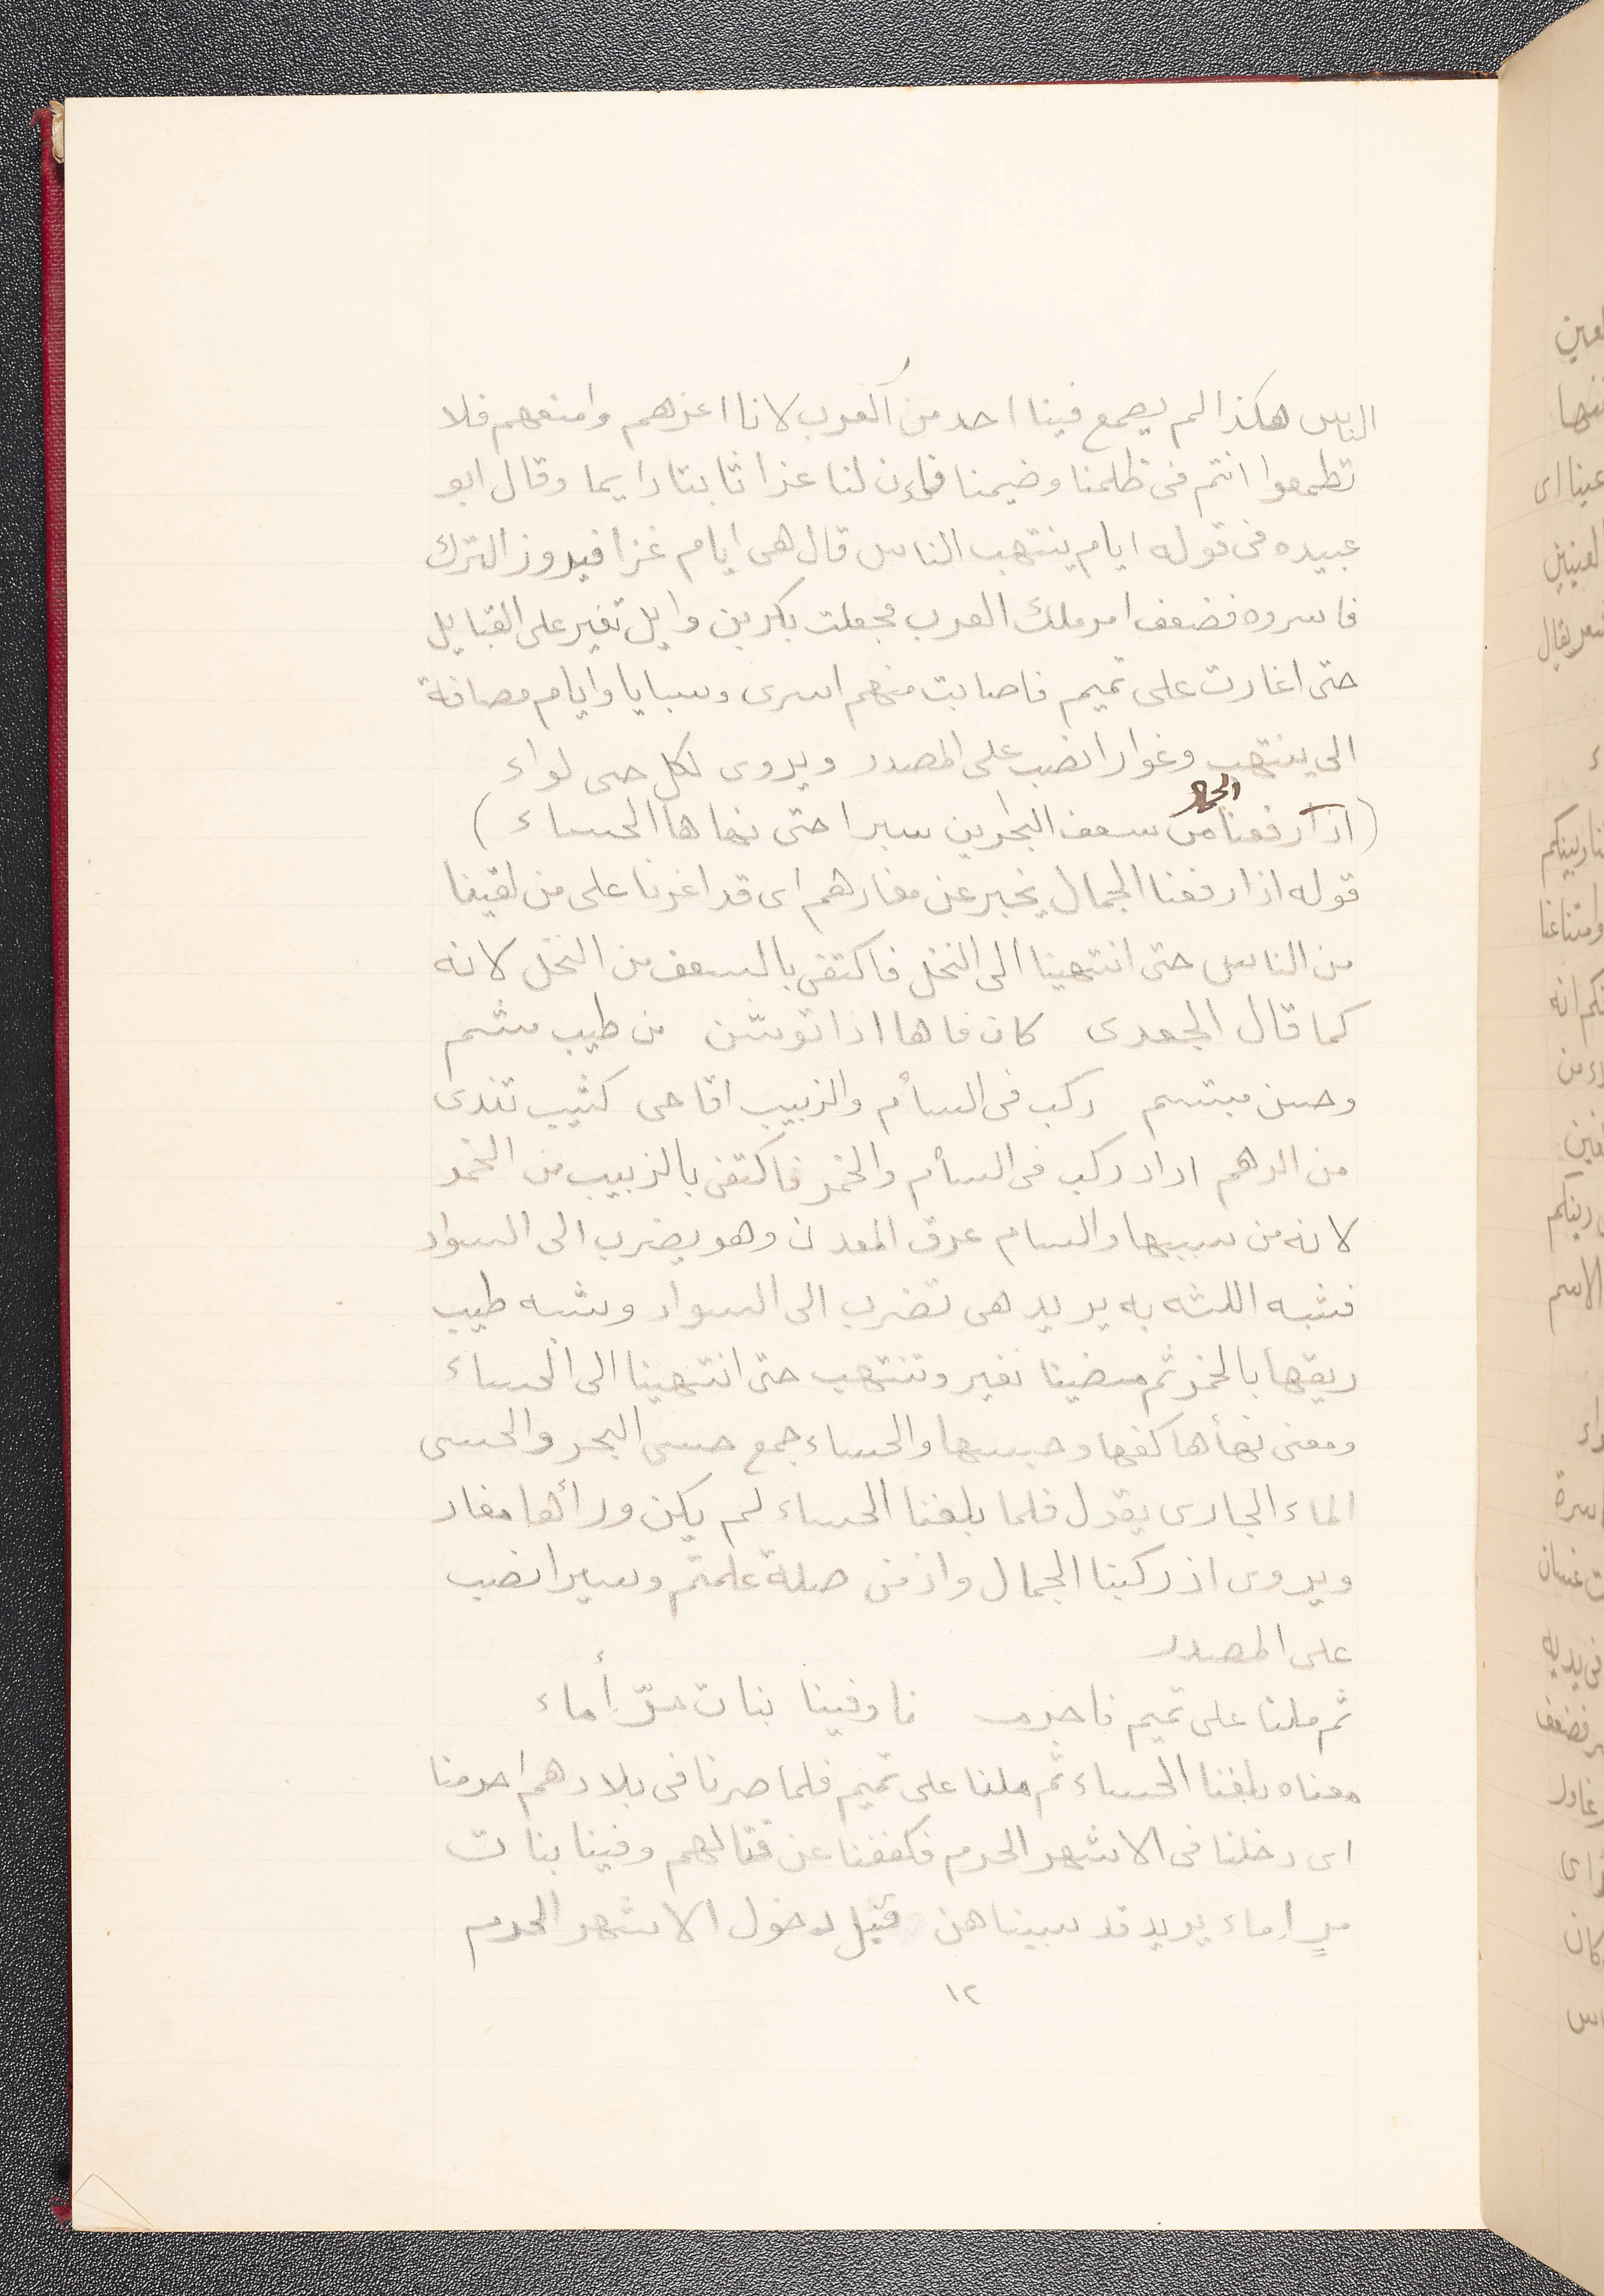 الناس هكذا لم يصمع فينا احد من العرب لانا اعزهم وامنعهم فلا
تطمعوا انتم فى ظلمنا وضيمنا فاءن لنا عزا ثابتا دايما وقال ابو
عبيده فى قوله ايام ينتهب الناس قال هى ايام غزا فيروز الترك
فاسروه فضعف امر ملك العرب فجعلت بكر بن وايل تغير على القبايل
حتى اغارت على تميم فاصابت منهم اسرى وسبايا وايام مصافة
الى ينتهب وغوارا نصب على المصدر ويروى لكل حى لواء
(اذا رفعنا الجمال من سعف البحرين سيرا حتى نهاها الحساء)
قوله اذا رفعنا الجمال يخبر عن مغارهم اى قد اغرنا على من لقينا
من الناس حتى انتهينا الى النخل فاكتفى بالسعف من النخل لانه
كما قال الجعدى كان فاها اذا توسّن من طيب مشم
وحسن مبتسم ركب فى السأم والزبيب اقاحى كثيب تندى
من الرهم اراد ركب فى السأم والخمر فاكتفى بالزبيب من الخمر
لانه من سببها والسام عرق المعدن وهو يضرب الى السواد
فشبه اللثه به يريد هى تضرب الى السواد وشبه طيب
ريقها بالخمر ثم مضينا نغير وتنتهب حتى انتهينا الى الحساء
ومعنى نهأها كفها وحبسها والحساء جمع حسى البحر والحسى
الماء الجارى يقول فلما بلغنا الحساء لم يكن ورأها مغار
ويروى اذ ركبنا الجمال واذ فى صلة علمتم وسيرا نصب
على المصدر
ثم ملنا على تميم فاحرم نا وفينا بنات مرّ أماء
معناه بلغنا الحساء ثم ملنا على تميم فلما صرنا فى بلادهم احرمنا
اى دخلنا فى الاشهر الحرم فكففنا عن قتالهم وفينا بنات
مرٍ اماء يريد قد سبيناهن قبل دخول الاشهر الحرم
١٢